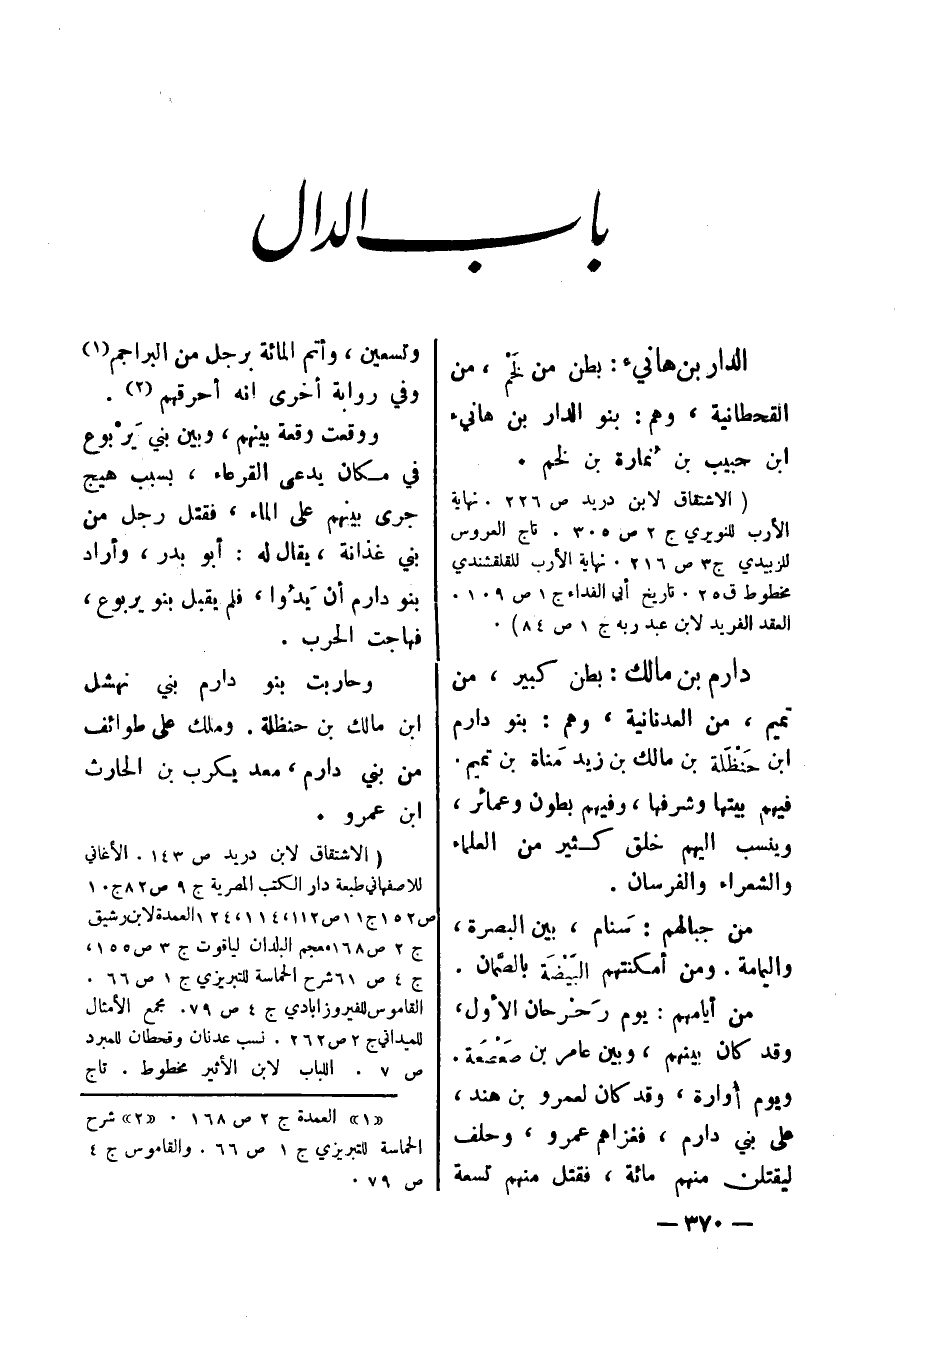 باب الدال
الدار بن هانيء : بطن من لَخْم ، من
القحطانية ، وهم : بنو الدار بن هانيء
ابن حبيب بن نُمارة بن لخم .
( الاشتقاق لابن دريد ص ٢٢٦ . نهاية
الأرب للنويري ج ٢ ص ٣٠٥ . تاج العروس
للزبيدي ج٣ ص ٢١٦ . نهاية الأرب للقلقشندي
مخطوط ق٢٥ . تاريخ أبي الفداء ج ١ ص ١٠٩ .
العقد الفريد لابن عبد ربه ج ١ ص ٨٤) .
دارم بن مالك : بطن كبير ، من
تميم ، من العدنانية ، وهم : بنو دارم
ابن حَنْظَلَة بن مالك بن زيد مَناة بن تميم .
فيهم بيتها وشرفها ، وفيهم بطون وعمائر ،
وينسب اليهم خلق كثير من العلماء
والشعراء والفرسان .
من جبالهم : سَنام ، بين البصرة ،
واليمامة . ومن أمكنتهم البَيْضَة بالصَّمان .
من أيامهم : يوم رَحْرحان الأول ،
وقد كان بينهم ، وبين عامر بن صَعْصَعَة .
ويوم أُوارة ، وقد كان لعمرو بن هند ،
على بني دارم ، فغزاهم عمرو ، وحلف
ليقتلن منهم مائة ، فقتل منهم تسعة
وتسعين ، وأتم المائة برجل من البراجم (١)
وفي رواية أخرى انه أحرقهم (٢) .
ووقعت وقعة بينهم ، وبين بني يَرْبوع
في مكان يدعى القرعاء ، بسبب هيج
جرى بينهم على الماء ، فقتل رجل من
بني غذانة ، يقال له : أبو بدر ، وأراد
بنو دارم أن يَدُوا ، فلم يقبل بنو يربوع ،
فهاجت الحرب .
وحاربت بنو دارم بني نهشل
ابن مالك بن حنظلة . وملك على طوائف
من بني دارم ، معد يكرب بن الحارث
ابن عمرو .
( الاشتقاق لابن دريد ص ١٤٣ . الأغاني
للاصفهاني طبعة دار الكتب المصرية ج ٩ ص ٨٢ ج١٠
ص١٥٢ ج١١ ص١١٢، ١١٤، ١٢٤ العمدة لابن رشيق
ج ٢ ص١٦٨ معجم البلدان لياقوت ج ٣ ص ١٥٥ ،
ج ٤ ص ٦١ شرح الحماسة للتبريزي ج ١ ص ٦٦ .
القاموس للفيروزابادي ج ٤ ص ٧٩. مجمع الأمثال
للميداني ج ٢ ص ٢٦٢ . نسب عدنان وقحطان للمبرد
ص ٧ . اللباب لابن الأثير مخطوط . تاج
«١» العمدة ج ٢ ص ١٦٨ . «٢» شرح
الحماسة للتبريزي ج ١ ص ٦٦ . والقاموس ج ٤
ص ٧٩ .
— ٣٧٠ —